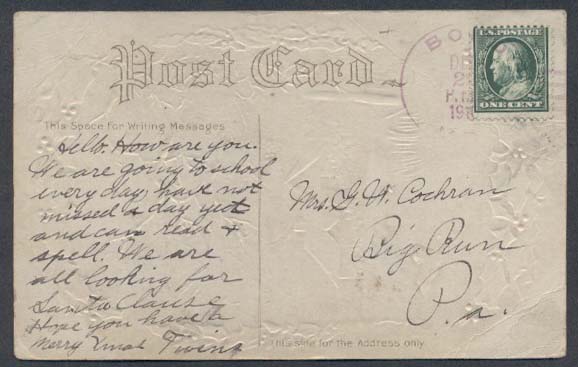 Post Card
U.S. POSTAGE
ONE CENT
BO
DE
2
P.M
19
This Space for Writing Messages
Hello. How are you.
We are going to school
every day, have not
missed a day yet
and can read &
spell. We are
all looking for
Santa Clause
Hope you have a
Merry Xmas Twins
Mrs. G. W. Cochran
Big Run
Pa.
This side for the Address only